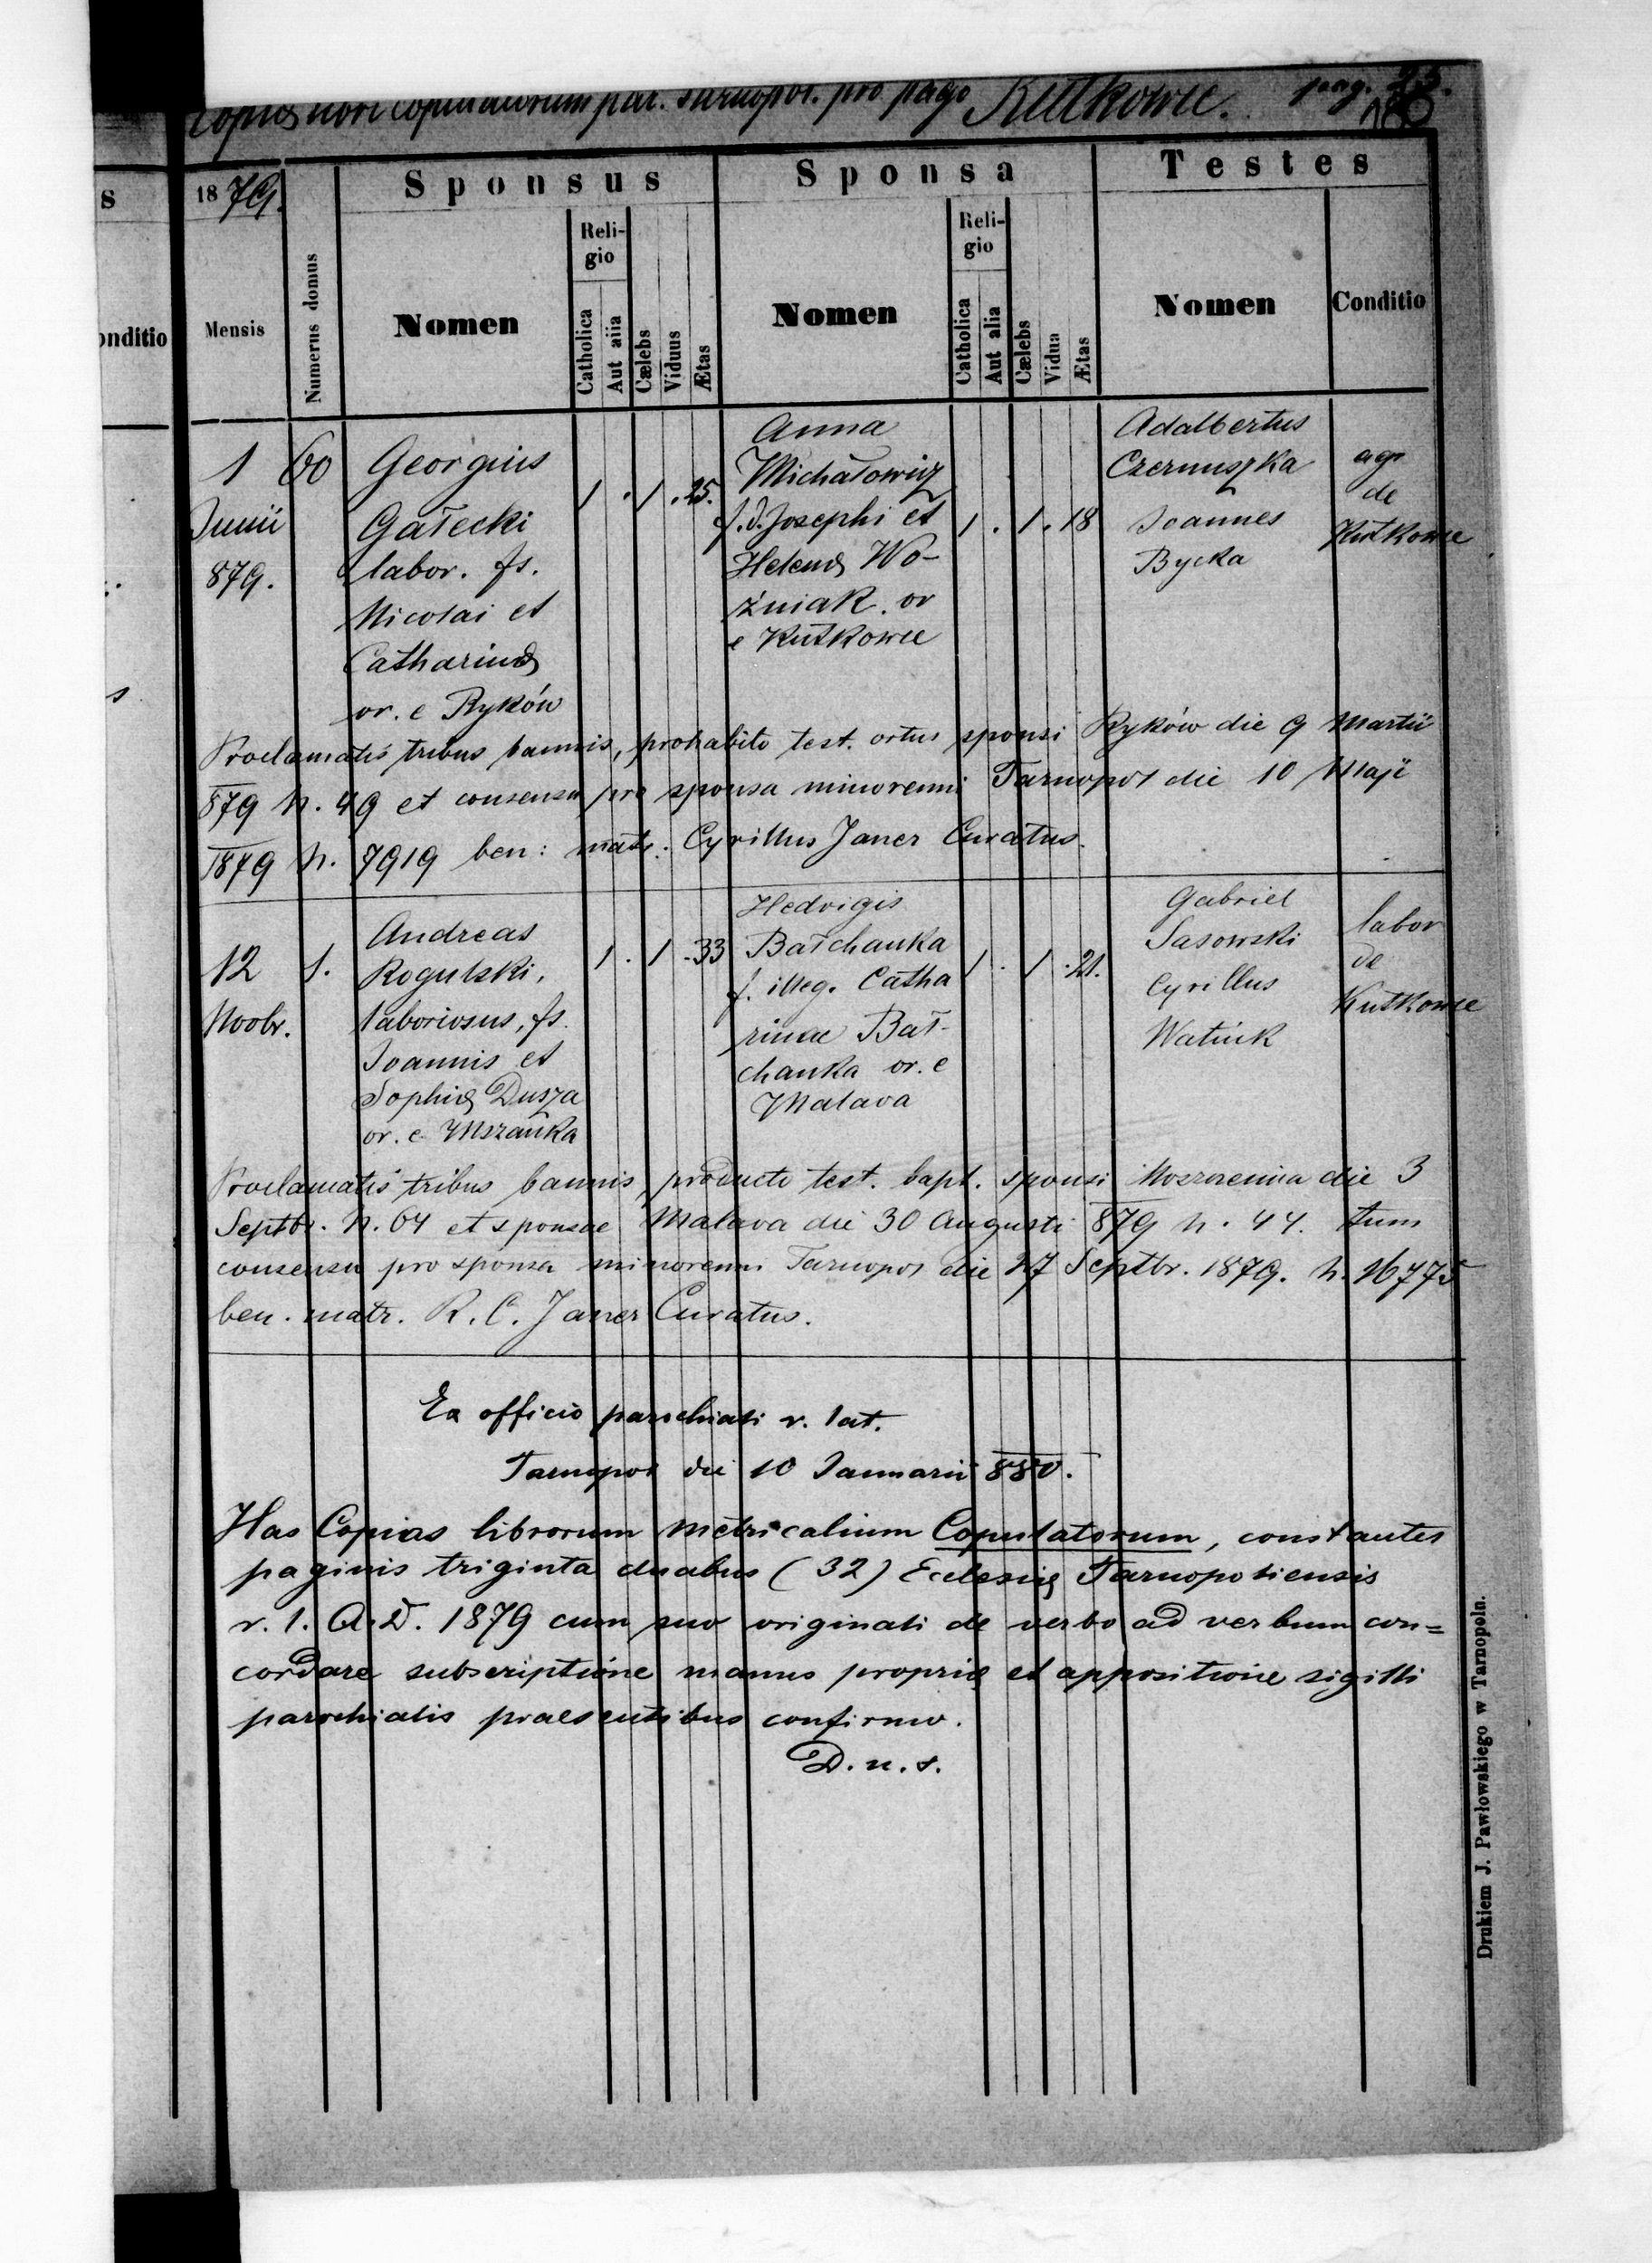 Copies libri copulatorum par. Tarnopol. pro pago Kutkowce. pag. 23.
s
onditio
1879.
Mensis
Numerus domus
Sponsus
Nomen
Reli-
gio
Catholica
Aut aiia
Cælebs
Viduus
Ætas
Sponsa
Nomen
Reli-
gio
Catholica
Aut alia
Cælebs
Vidua
Ætas
Testes
Nomen
Conditio
1
Junii
879.
60
Georgius
Gałecki
labor. fs.
Nicolai et
Catharinæ
or. e Ryków
1 . 1 . 25.
Anna
Michałowicz
f. d. Josephi et
Helenæ Wo-
źniak. or
e Kutkowce
1 . 1 . 18
Adalbertus
Czernuszka
Joannes
Bycka
agr
de
Kutkowce
Proclamatis tribus bannis, prohabito test. ortus sponsi Ryków die 9 Martii
879 N. 49 et consensu pro sponsa minorenni Tarnopol die 10 Maji
1879 N. 7919 ben: matr. Cyrillus Janer Curatus.
12
Novbr.
1.
Andreas
Rogulski,
laboriosus, fs.
Joannis et
Sophiæ Dusza
or. e Mszańka
1 . 1 . 33
Hedvigis
Bałchanka
f. illeg. Catha
rinae Bał-
chanka or. e
Malava
1 . 1 . 21.
Gabriel
Sasowski
Cyrillus
Watiuk
labor
de
Kutkowce
Proclamatis tribus bannis, producto test. bapt. sponsi die 3
Septbr. N. 64 et sponsae Malava die 30 Augusti 879 N. 44. tum
consensu pro sponsa minorenni Tarnopol die 27 Septbr. 1879. N. 16775
ben. matr. R. C. Janer Curatus.
Ex officio parochiali r. lat.
Tarnopol die 10 Januarii 880.
Has Copias librorum metricalium Copulatorum, constantes
paginis triginta duabus (32) Ecclesiæ Tarnopoliensis
r. l. A. D. 1879 cum suo originali de verbo ad verbum con=
cordare subscriptione manus propriæ et appositione sigilli
parochialis praesentibus confirmo.
D. u. s.
Drukiem J. Pawłowskiego w Tarnopoln.